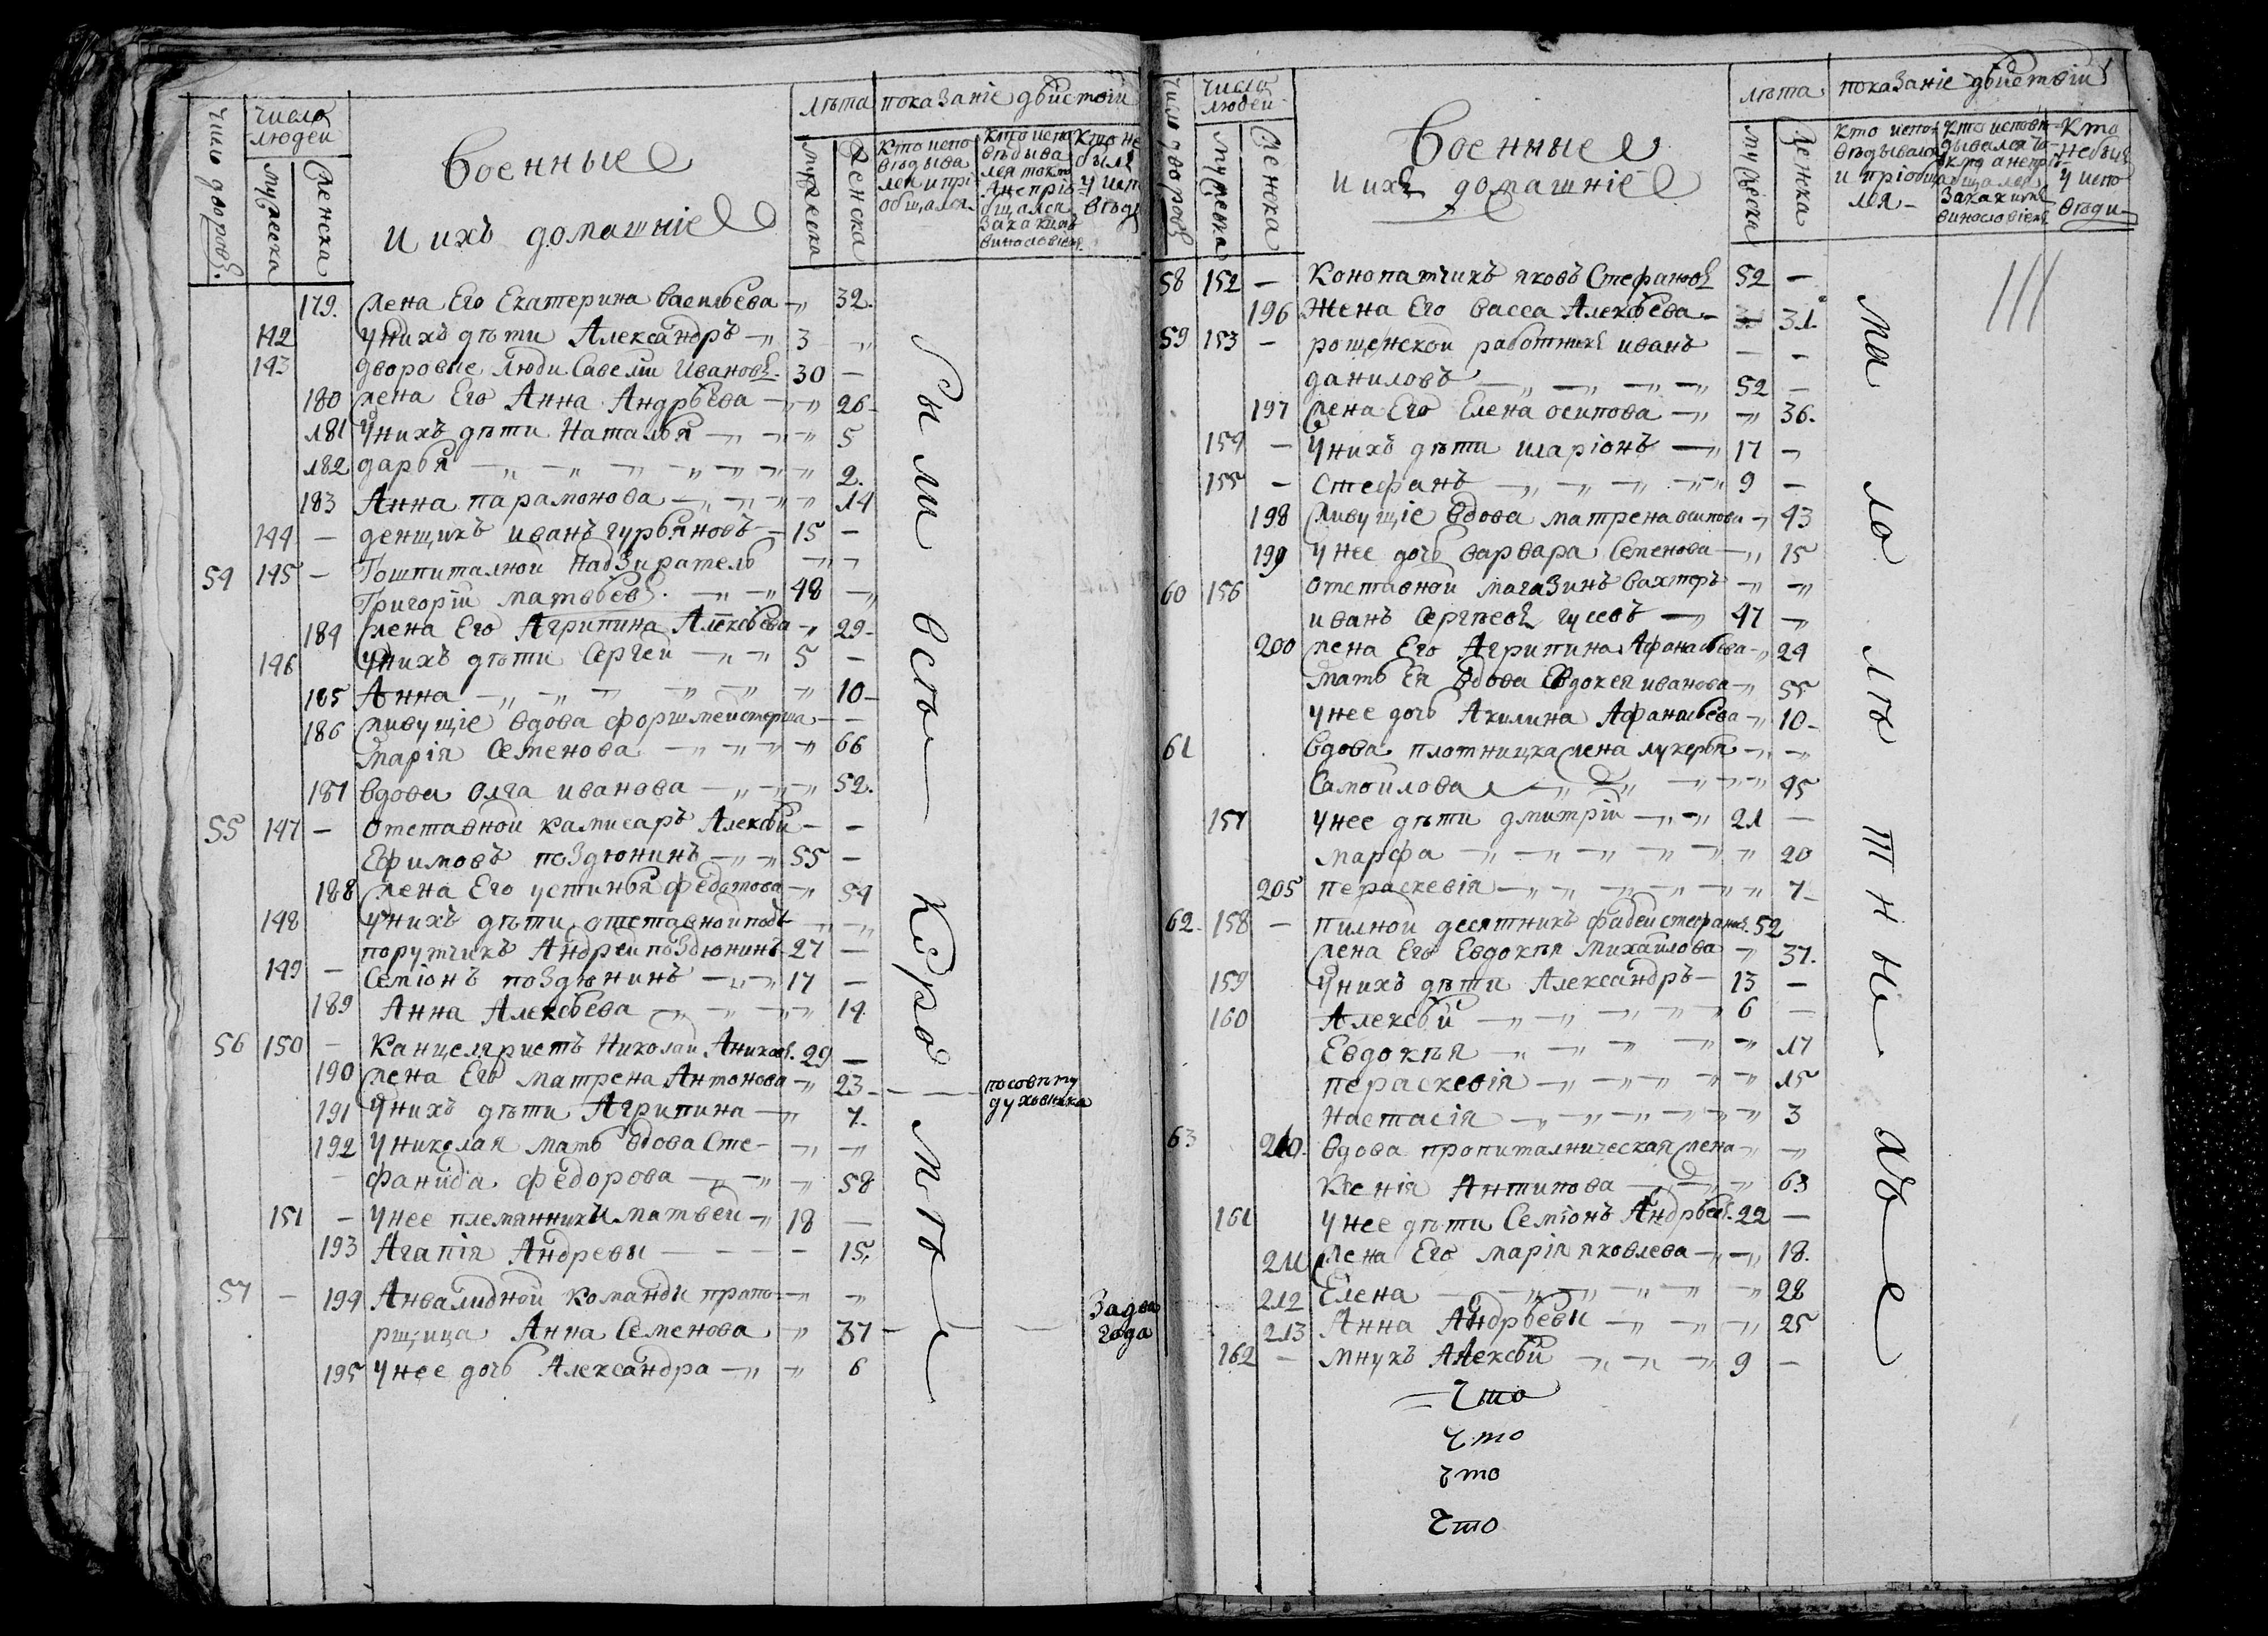 число дворовъ.
число людей
мужеска
женска
Военные
и ихъ домашние
лѣта
мужеска
женска
показаніе дѣйствій
кто исповѣдывался и пріобщался.
кто исповѣдывался токмо а не пріобщался за какимъ винословіемъ.
кто не былъ у исповѣди
179. жена Его Екатерина Васильева -„ 32.
142 у нихъ дѣти Александръ -„ 3 -„
143 дворовые люди Савелій Ивановъ. 30 —
180 жена Его Анна Андрѣева -„ -„ 26-
181 у нихъ дѣти Наталья -„ -„ -„ 5
182 дарья -„ -„ -„ -„ -„ -„ 2.
183 Анна парамонова -„ -„ -„ 14
144 — денщикъ иванъ гурьяновъ - 15 —
54 145 — Гошпиталной надзиратель -„ -„
Григорій матвѣевъ. -„ -„ 48 -„
184 жена Его Агрипина Алексѣева -„ 29-
146 у нихъ дѣти Сергей -„ -„ 5 —
185 Анна -„ -„ -„ -„ -„ -„ 10-
186 живущіе вдова форшмейстерша - —
марія Семенова -„ -„ -„ -„ 66
187 вдова Олга иванова -„ -„ -„ 52.
55 147 — Отставной камисаръ Алексѣй - —
Ефимовъ поздюнинъ -„ -„ 55 —
188 жена Его устинья федотова -„ 54
148 у нихъ дѣти отставной подъ -„ -„
порутчикъ Андрей поздюнинъ 27 —
149 — Семіонъ поздюнинъ -„ -„ 17 —
189 Анна Алексѣева -„ -„ -„ 14.
56 150 — Канцеляристъ Николай Аникіевъ. 29 —
190 жена Его матрена Антонова -„ 23- — — по совѣту духовника
191 у нихъ дѣти Агрипина -„ 7.
192 у николая мать вдова Сте- -„ -„
фанида федорова -„ -„ -„ 58
151 — у нее племянники матвей -„ 18 —
193 Агапія Андревы — — — - 15.
57 — 194 Анвалидной команды прапо- -„ -„
рщица Анна Семенова -„ 37 — — — За два года
195 у нее дочь Александра -„ -„ 6
были все
кромѣ
число дворовъ
число людей
мужеска
женска
Военные
и ихъ домашніе
лѣта
мужеска
женска
показаніе дѣйствій
кто исповѣдывался и пріобщался-
кто исповѣдывался токмо а не пріобщался за какимъ винословіемъ
кто не былъ у исповѣди-
58 152 — Конопатчикъ яковъ Стефановъ 52 —
196 Жена Его васса Алексѣева - — 31.
59 153 — рощенской работникъ иванъ — -
даниловъ -„ -„ -„ -„ 52 —
197 жена Его Елена осипова -„ -„ 36.
154 — у нихъ дѣти иларіонъ -„ 17 -
155 — Стефанъ -„ -„ -„ -„ 9 —
198 живущіе вдова матрена осипова -„ 43
199 у нее дочь варвара Семенова -„ 15
60 156 отставной магазинъ вахтеръ -„ -„
иванъ Сергѣевъ гусевъ -„ 47 -„
200 жена Его Агрипина Афанасьева -„ 24
мать Ея вдова Евдокея иванова -„ 55
у нее дочь Акилина Афанасьева -„ 10-
61 вдова плотницка жена лукерья -„ -„
Самоилова -„ -„ -„ -„ 45
157 у нее дѣти дмитрій -„ -„ 21 —
марфа -„ -„ -„ -„ -„ -„ 20
205 пераскевія -„ -„ -„ -„ -„ -„ 7-
62. 158 — пилной десятникъ фадей стефановъ. 52
жена Его Евдокѣя михайлова -„ 37.
159 у нихъ дѣти Александръ - 13 —
160 Алексѣй -„ -„ -„ -„ 6 —
Евдокѣя -„ -„ -„ -„ -„ 17
пераскевія -„ -„ -„ -„ -„ 15
настасія -„ -„ -„ -„ -„ 3
63. 210. вдова пропиталническая жена -„ -„
Ксенія Антипова -„ -„ -„ 63
161 у нее дѣти Семіонъ Андрѣевъ. 22 —
211 жена Его марія яковлева -„ -„ 18.
212 Елена — -„ -„ -„ -„ -„ 28
213 Анна Андрѣевы -„ -„ -„ 25
162 — мнукъ Алексѣй -„ -„ -„ 9 —
что
что
что
что
малолѣтныхъ